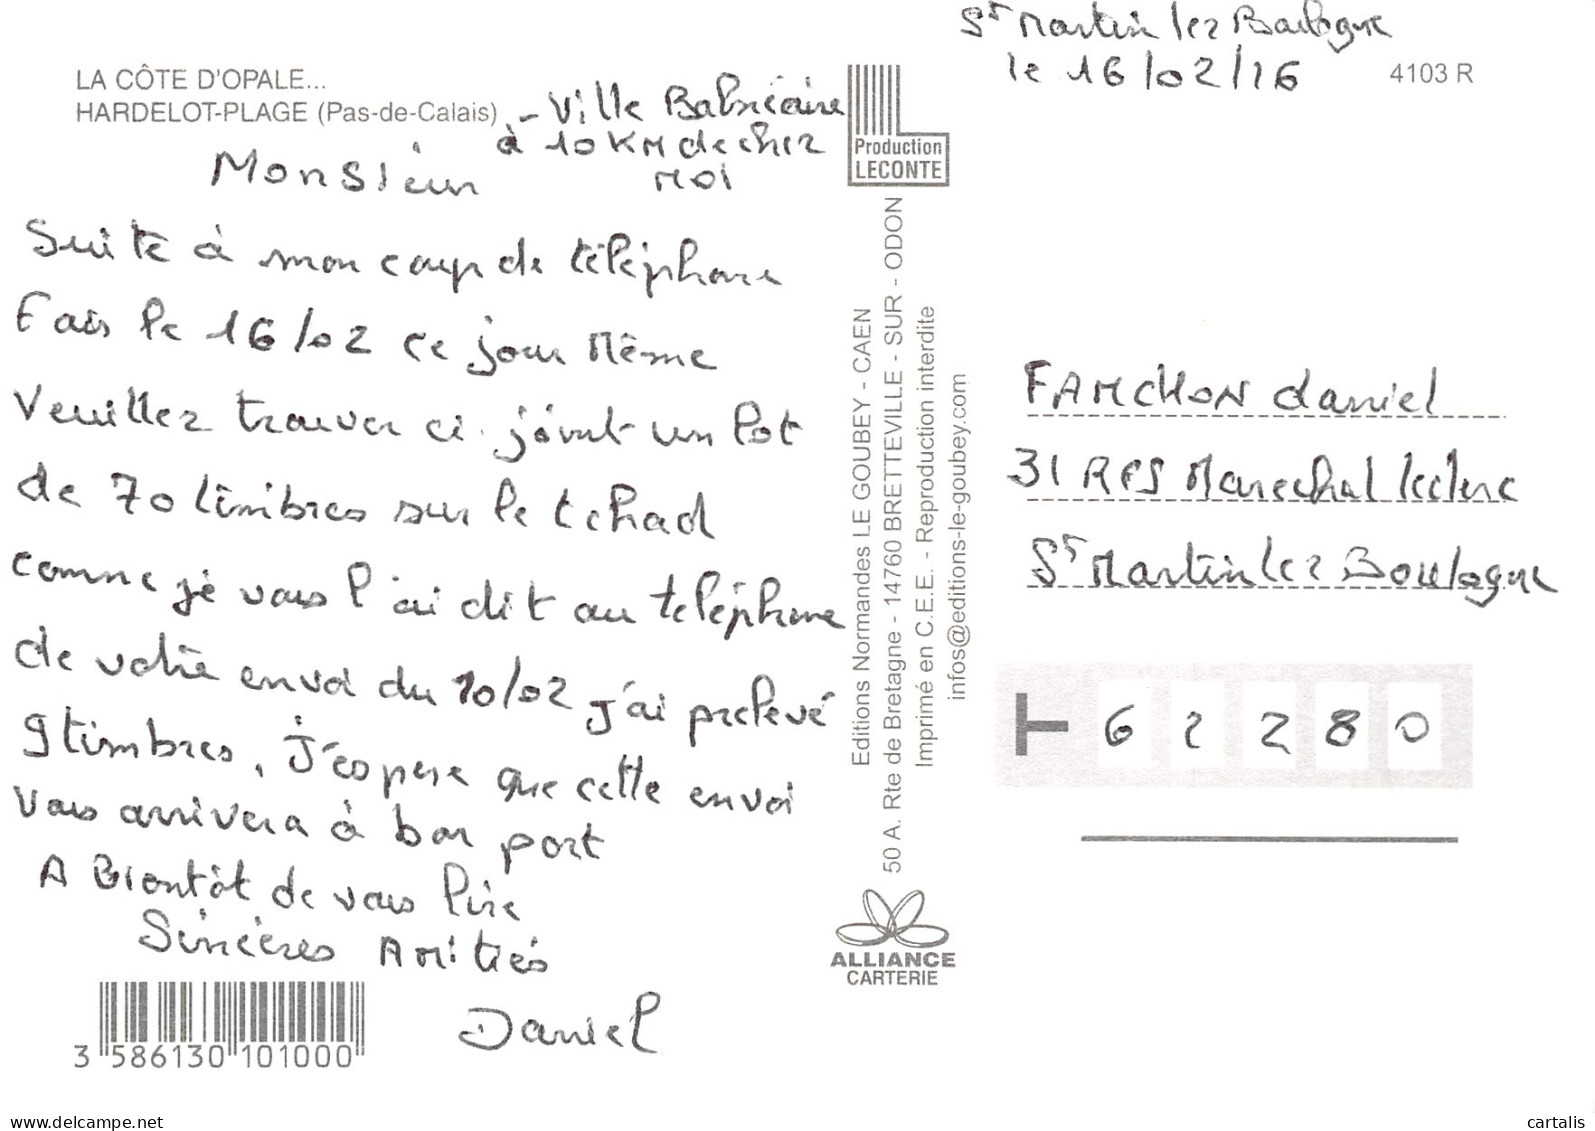 LA CÔTE D'OPALE...
HARDELOT-PLAGE (Pas-de-Calais)
- Ville Balnéaire
à 10 KM de chez
MOI
Monsieur
Suite à mon coup de téléphone
Fais le 16/02 ce jour Même
Veuillez trouver ci-joint un Lot
de 70 timbres sur le tchad
comme je vous l'ai dit au telephone
de votre envoi du 10/02 J'ai prelevé
9 timbres, J'éspere que cette envoi
Vous arrivera à bon port
A Bientôt de vous lire
Sincères Amitiés
Daniel
3 586130 101000
Production
LECONTE
Editions Normandes LE GOUBEY - CAEN
50 A. Rte de Bretagne - 14760 BRETTEVILLE - SUR - ODON
Imprimé en C.E.E. - Reproduction interdite
infos@editions-le-goubey.com
ALLIANCE
CARTERIE
St Martin lez Boulogne
le 16/02/16
4103 R
FAMCHON daniel
31 RES Marechal leclerc
St Martin lez Boulogne
T 62280
delcampe.net
cartalis